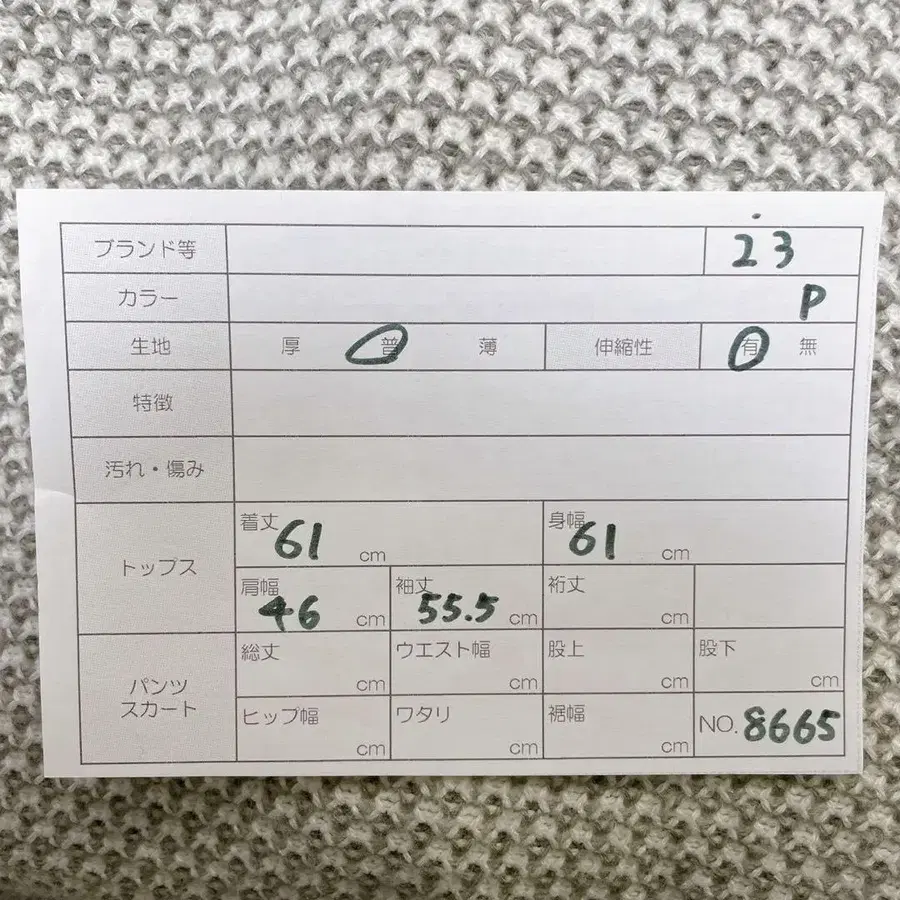 ブランド等 23
カラー P
生地 厚 普 薄 伸縮性 有 無
特徴
汚れ・傷み
トップス
着丈 61 cm 身幅 61 cm
肩幅 46 cm 袖丈 55.5 cm 裄丈 cm
パンツ
スカート
総丈 cm ウエスト幅 cm 股上 cm 股下 cm
ヒップ幅 cm ワタリ cm 裾幅 cm NO. 8665